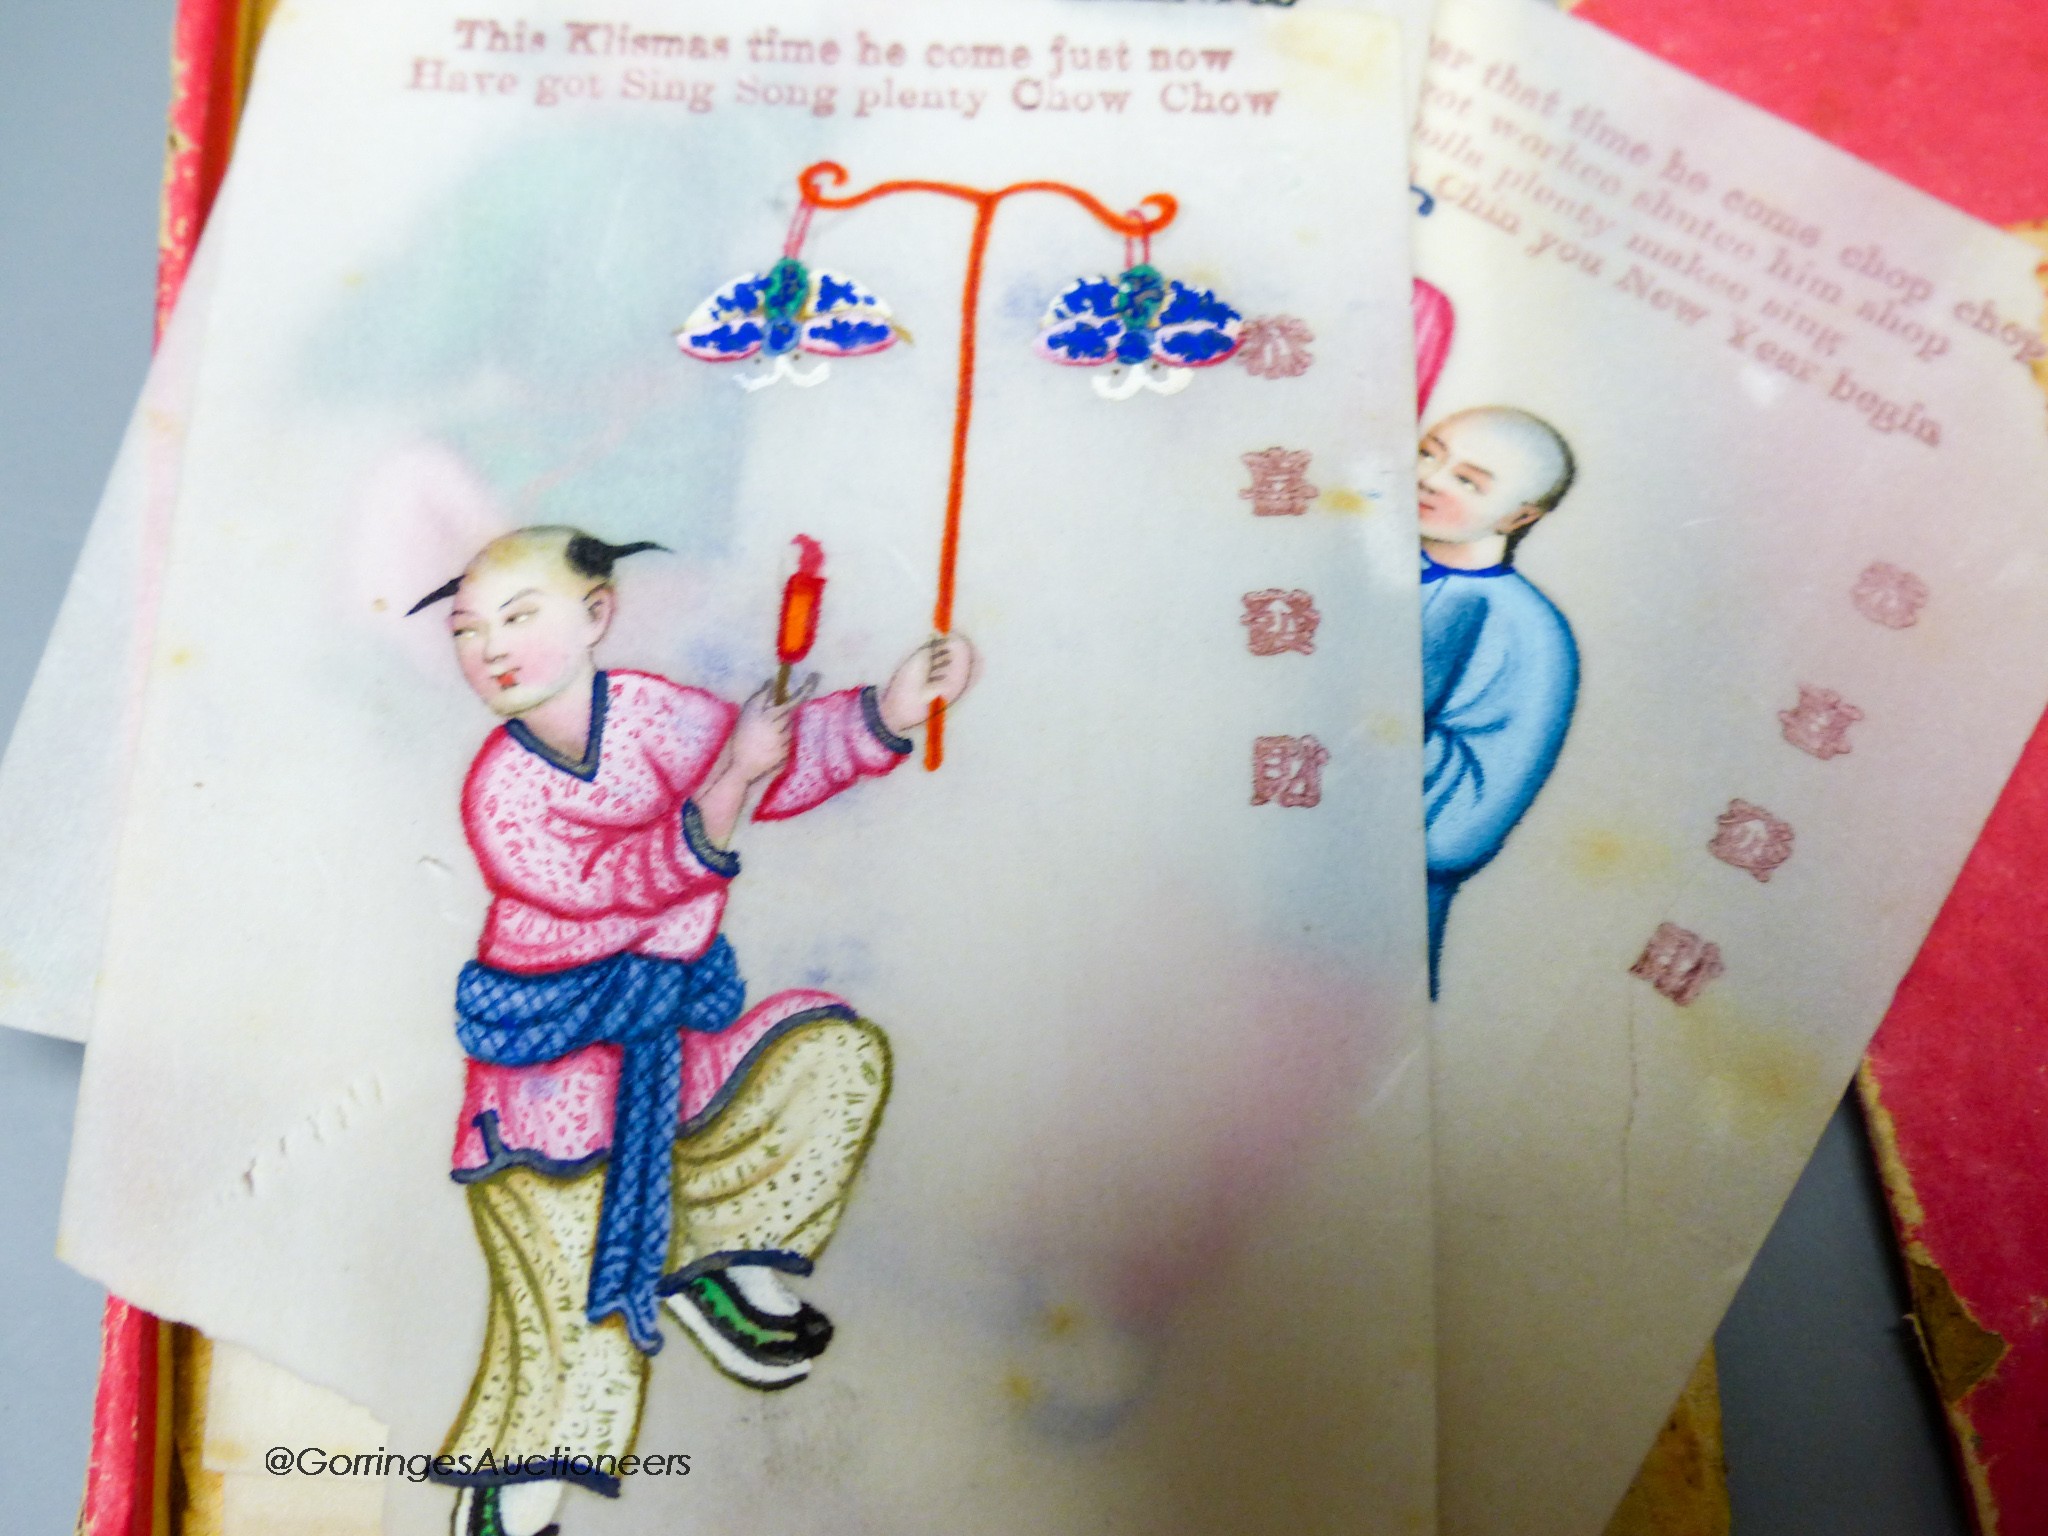 This Klismas time he come just now
Have got Sing Song plenty Chow Chow
恭
喜
發
財
that time he come chop chop
got workee shutee him shop
plenty makee sing
Chin you New Year begin
恭
喜
發
財
@GorringesAuctioneers